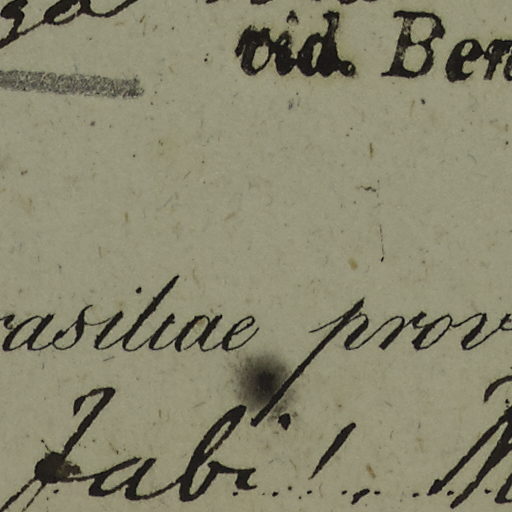 vid. Ben
rasiliae prov
Jabi!